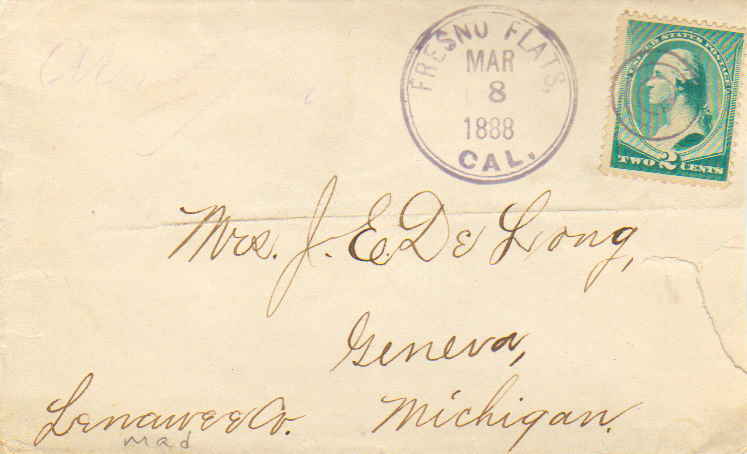 FRESNO FLATS,
MAR
8
1888
CAL.
UNITED STATES POSTAGE
TWO 2 CENTS
Mrs. J. E. De Long,
Geneva,
Lenawee Co. Michigan.
mad